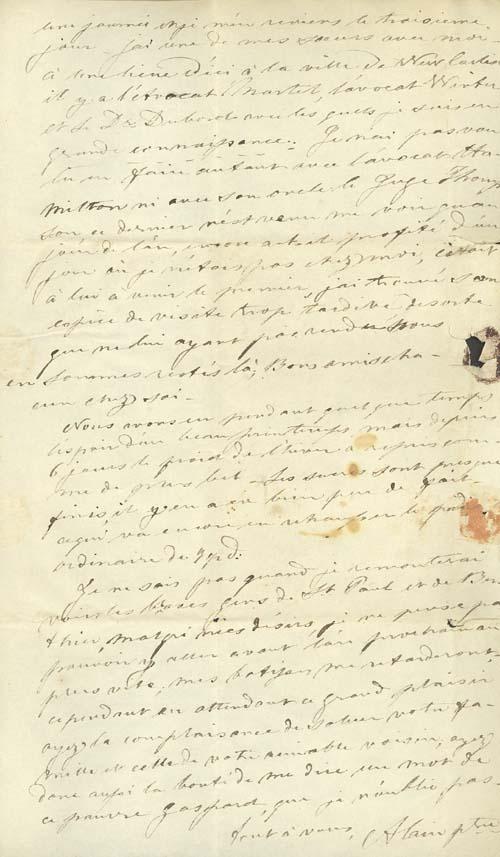 une journée et je m'en reviens le troisième
jour. j'ai une de mes sœurs avec moi.
à une lieue d'ici à la ville de New Carlisle
il y a l'Avocat Martel, l'avocat Winter
et le Dr. Dubord avec les quels je suis en
grande connaissance. Je n'ai pas vou-
lu en faire autant avec l'avocat Ha-
milton ni avec son oncle le Juge Thomp
son, ce dernier n'est venu me voir qu'au
jour de l'an, encore a-t-il profité d'un
jour où je n'étais pas chez moi, c'était
à lui à venir le premier, j'ai trouvé son
espèce de visite trop tardive desorte
que ne lui ayant pas rendu nous
en sommes restés là, Bons amis cha-
cun chez soi.
Nous avons eu pendant quelque temps
l'espoir d'un beau printemps mais depuis
6 jours le froid de l'hiver a repris com
me de plus bel. Les sucres sont presque
finis, il y en a eu bien peu de fait
ce qui va encore en rehausser le prix
ordinaire de
Je ne sais pas quand je remonterai
voir les braves gens de St Paul et de Ber
thier, malgré mes désirs je ne pense pas
pouvoir y aller avant l'an prochain au
plus vite, mes batisses me retarderont.
cependant en attendant ce grand plaisir
ayez la complaisance de saluer votre fa-
mille et celle de votre aimable voisin, ayez
donc aussi la bonté de me dire un mot de
ce pauvre Gaspard, que je n'oublie pas.
Tout à vous, Alain ptre